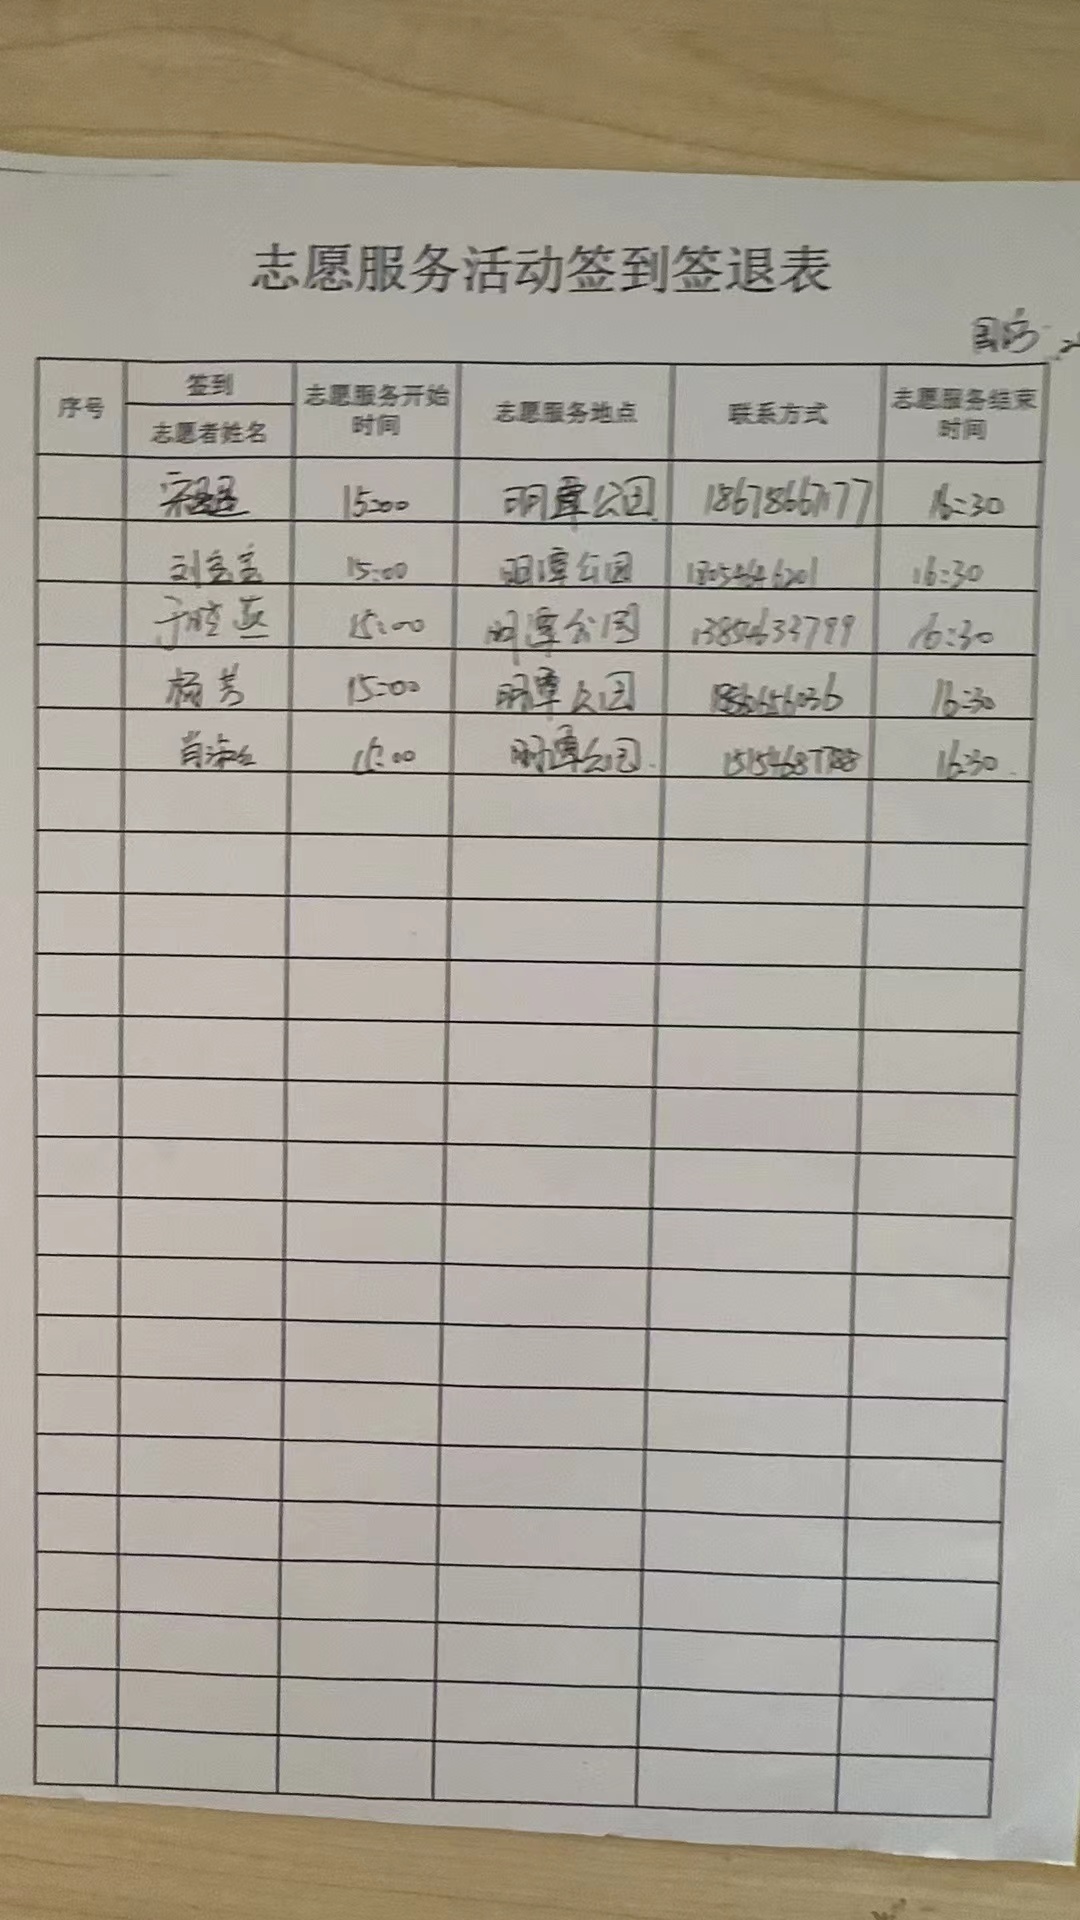 志愿服务活动签到签退表
序号 签到 志愿者姓名 志愿服务开始时间 志愿服务地点 联系方式 志愿服务结束时间
15:00 明潭公园 18678667177 16:30
刘宝宝 15:00 明潭公园 16:30
15:00 明潭公园 13854633799 16:30
杨芳 15:00 明潭公园 16:30
肖海红 15:00 明潭公园 16:30